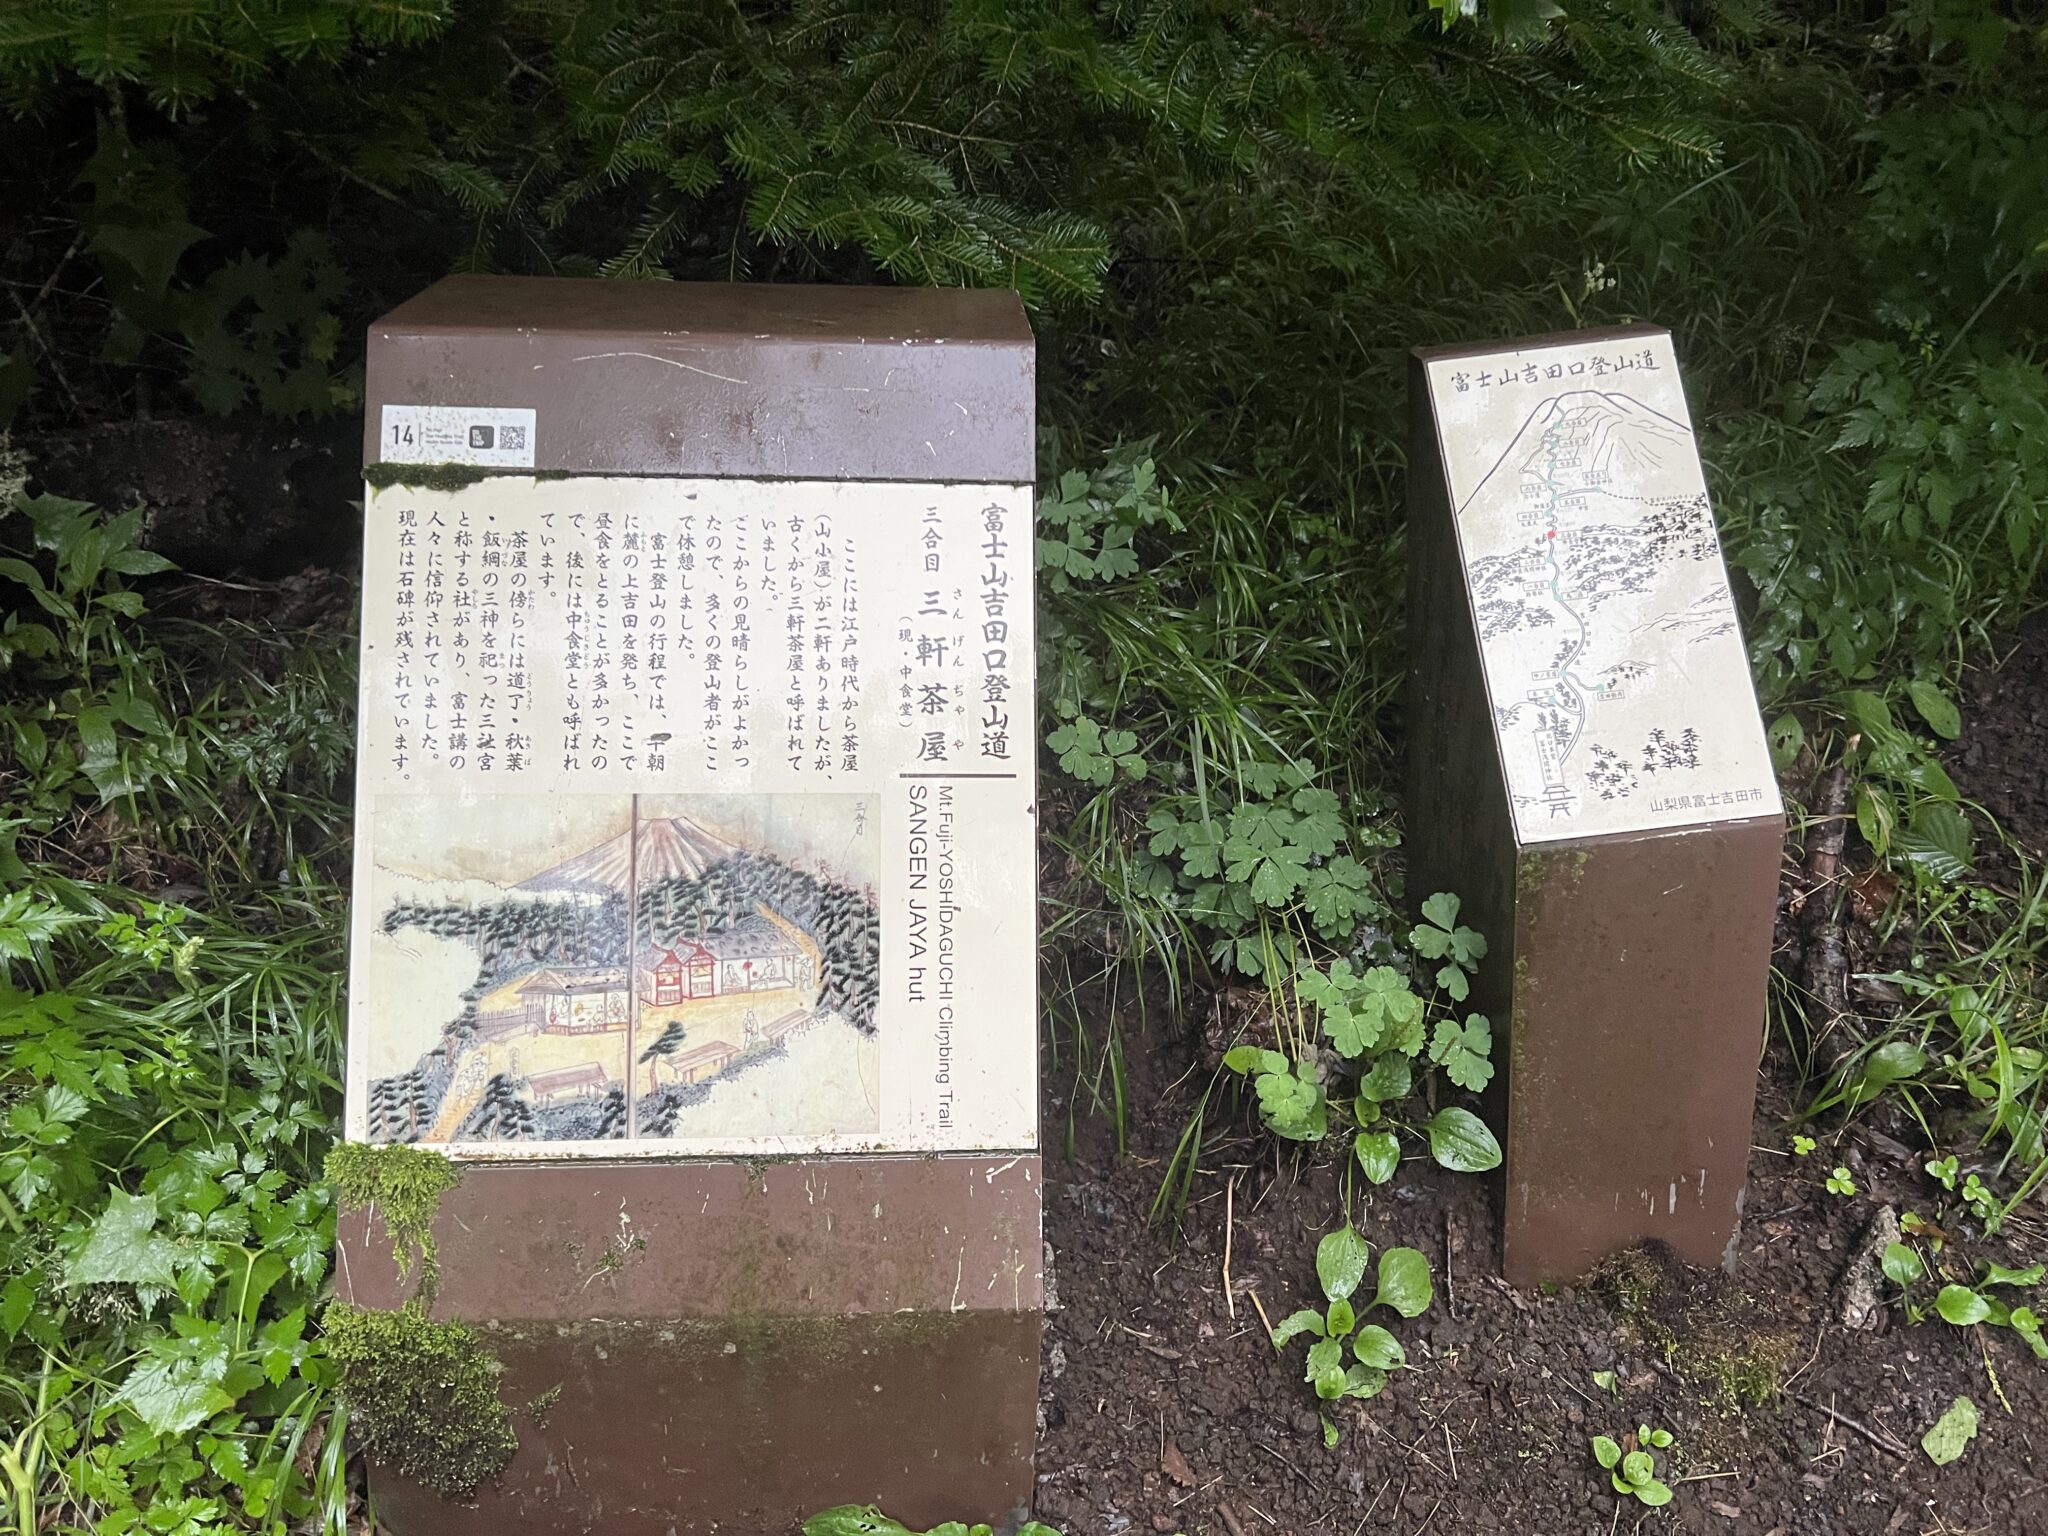 14
富士山吉田口登山道
三合目 三軒茶屋
さんげんぢやや
(現・中食堂)
Mt.Fuji-YOSHIDAGUCHI Climbing Trail
SANGEN JAYA hut
ここには江戸時代から茶屋
(山小屋)が二軒ありましたが、
古くから三軒茶屋と呼ばれて
いました。
ここからの見晴らしがよかっ
たので、多くの登山者がここ
で休憩しました。
富士登山の行程では、早朝
に麓の上吉田を発ち、ここで
昼食をとることが多かったの
で、後には中食堂とも呼ばれ
ています。
茶屋の傍らには道了・秋葉
・飯綱の三神を祀った三社宮
と称する社があり、富士講の
人々に信仰されていました。
現在は石碑が残されています。
三合目
富士山吉田口登山道
山梨県富士吉田市